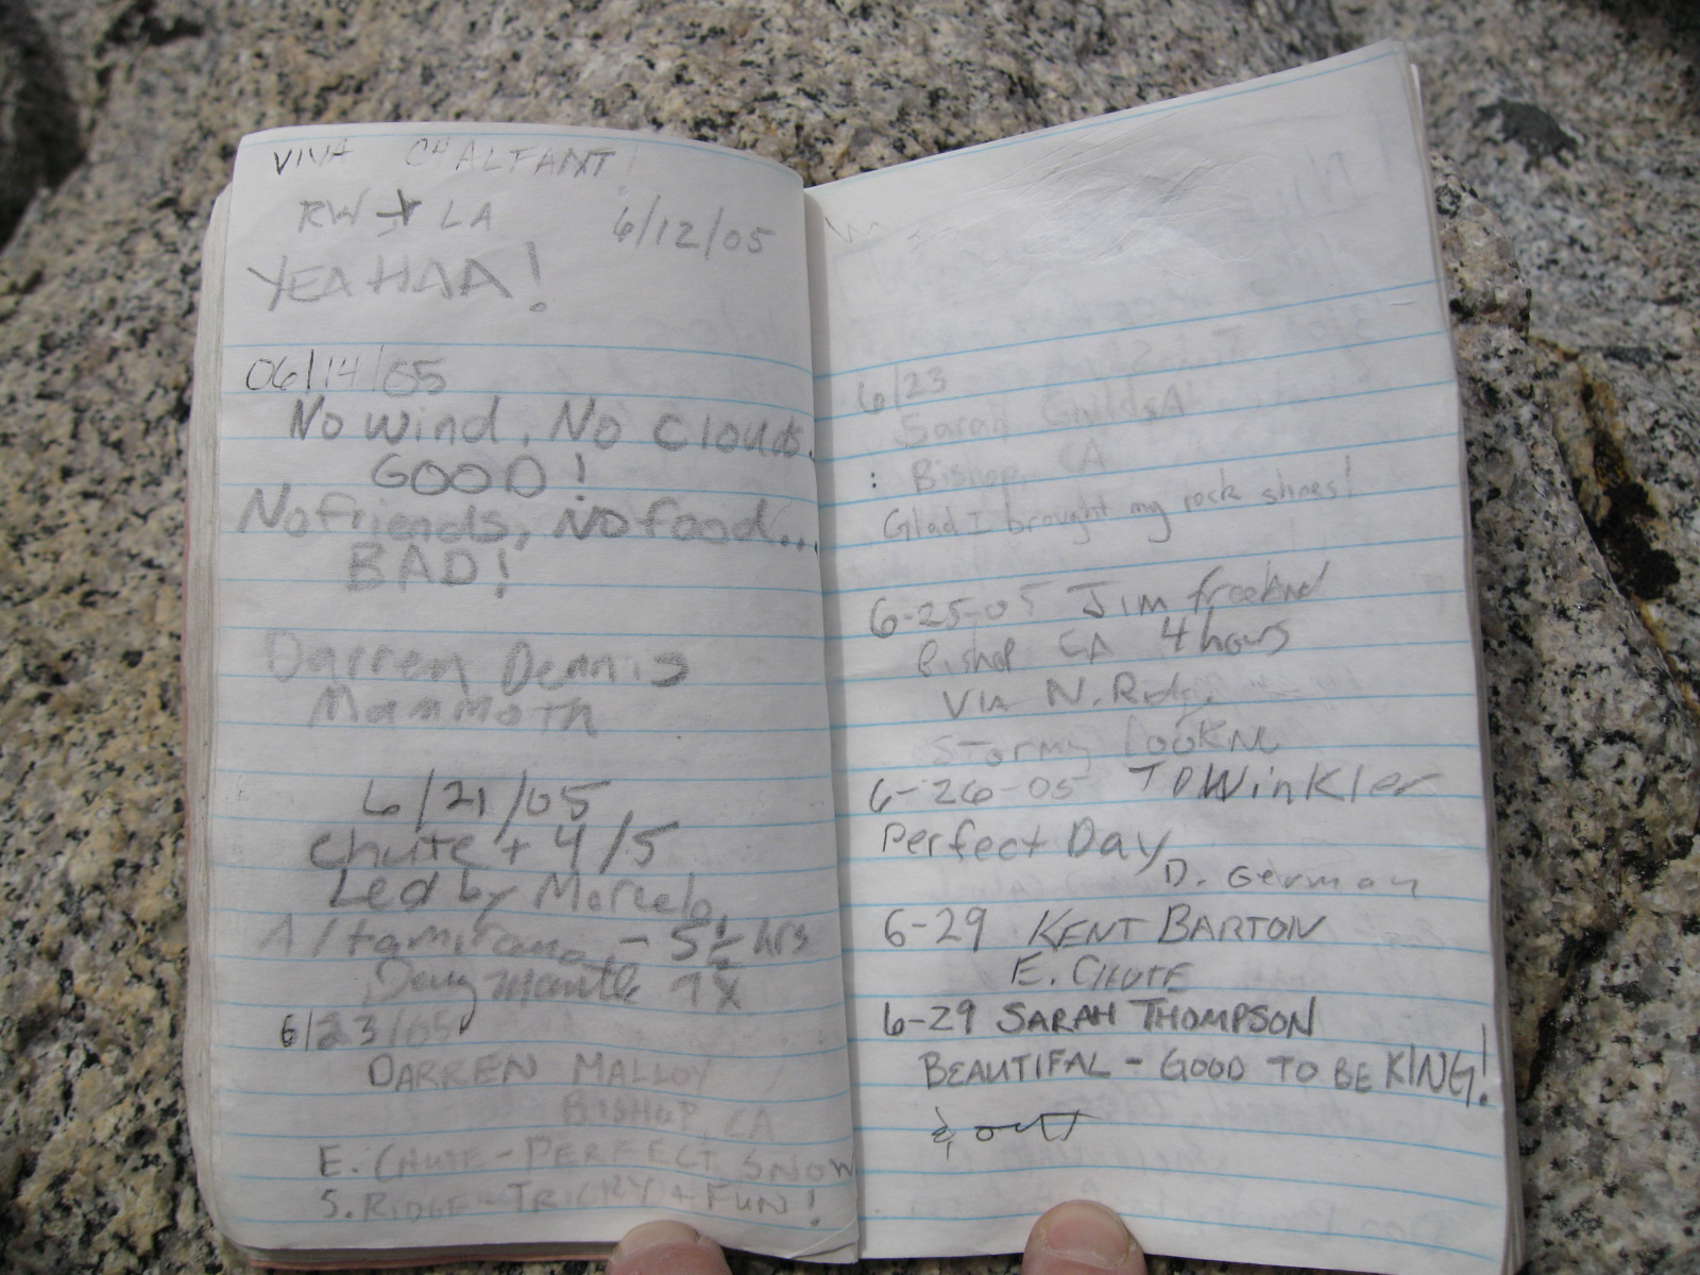 VIVA CHALFANT!
RW + LA 6/12/05
YEAHAA!
06/14/05
No wind, No Clouds.
GOOD!
No friends, No food...
BAD!
Darren Dennis
Mammoth
6/21/05
Chute + 4/5
Led by Marcelo
Altamirano - 5½ hrs
Doug Mantle 7X
6/23/05
DARREN MALLOY
BISHOP, CA
E. CHUTE - PERFECT SNOW
S. RIDGE - TRICKY + FUN!
6/23
Sarah
Bishop, CA
Glad I brought my rock shoes!
6-25-05 JIM
Bishop CA 4 hours
VIA N. Rdg.
STormy
6-26-05 TD Winkler
Perfect Day
D. German
6-29 KENT BARTON
E. CHUTE
6-29 SARAH THOMPSON
BEAUTIFAL - GOOD TO BE KING!